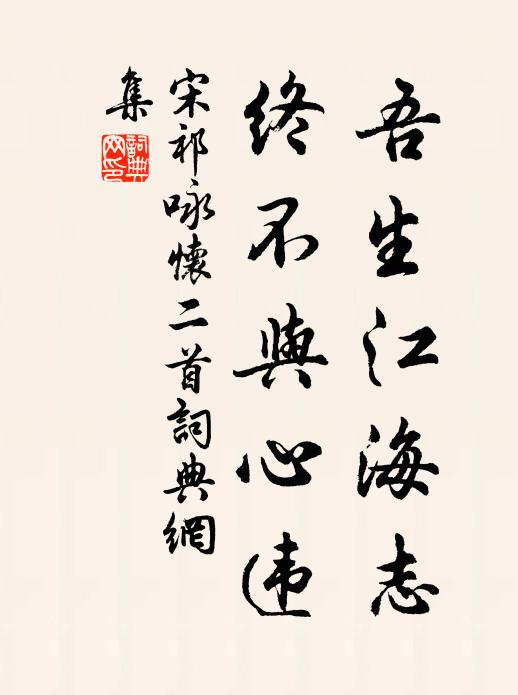 吾生江海志
終不與心违
宋祁咏懷二首詞典網
集
詞典網印